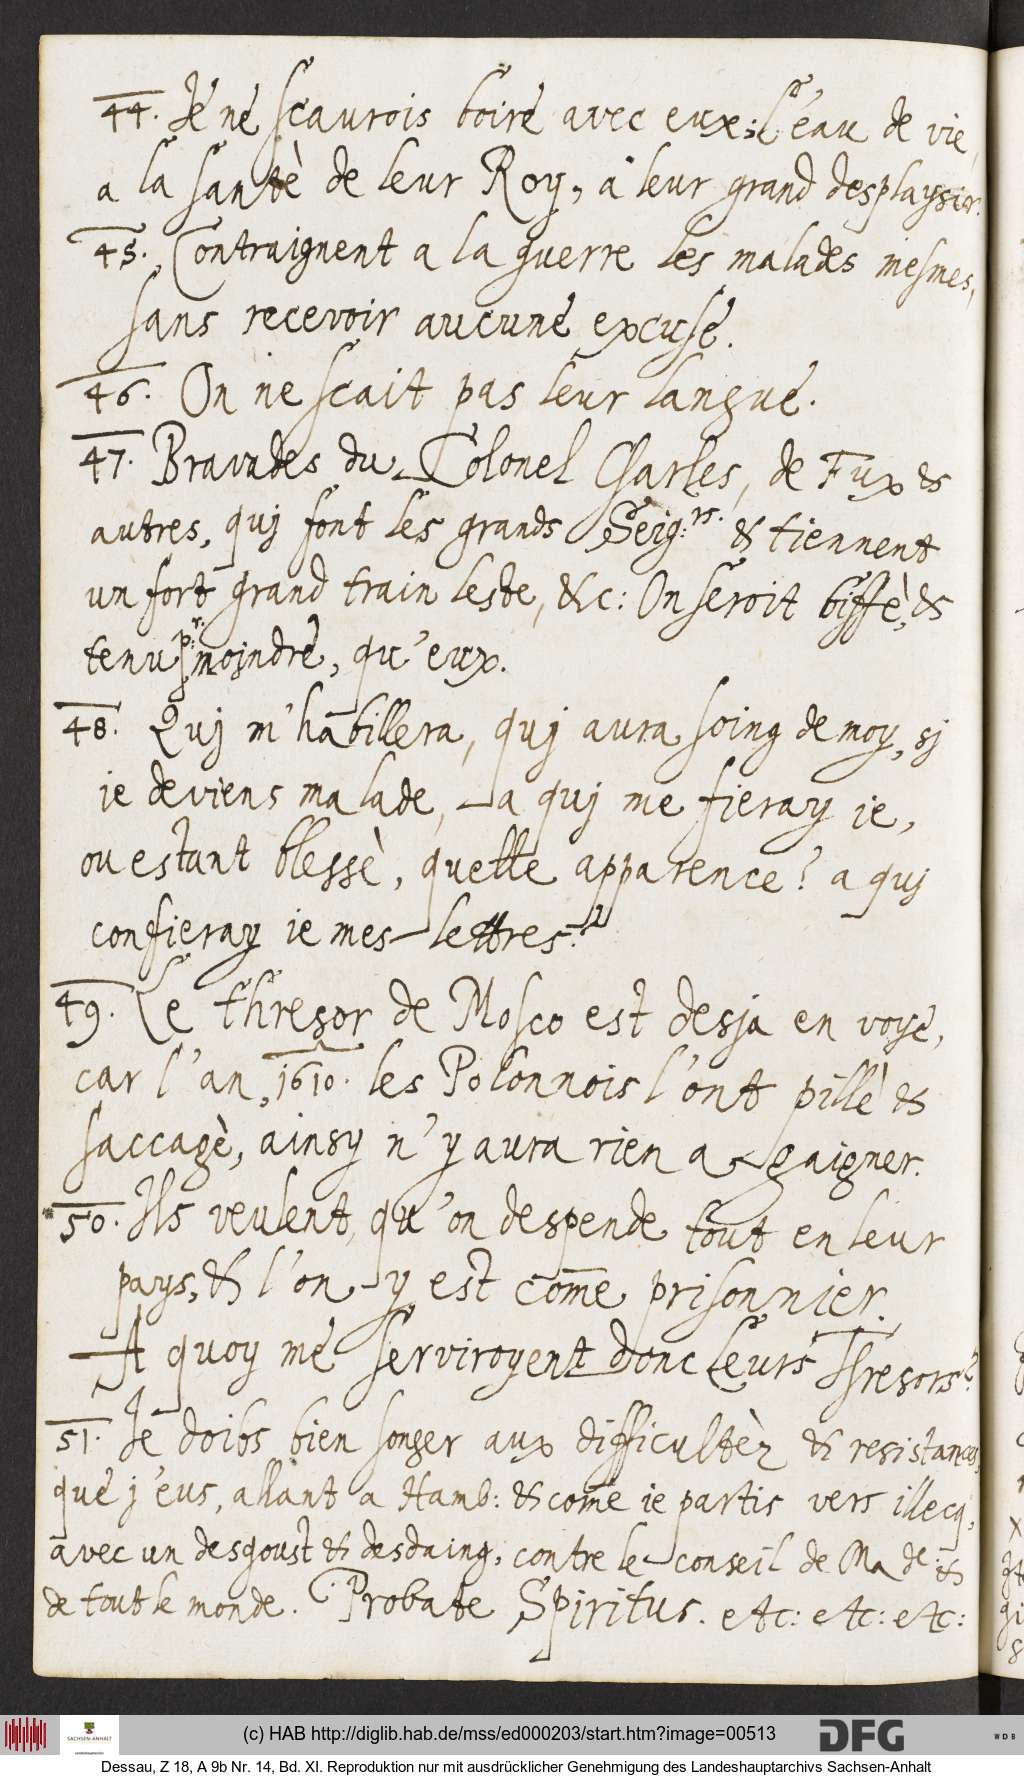 44. Je ne scaurois boire avec eux, l'eau de vie,
a la santè de leur Roy, a leur grand desplaysir.
45. Contraignent a la guerre les malades mesmes,
sans recevoir aucune excuse.
46. On ne scait pas leur langue.
47. Bravades du Colonel Charles, de Fux &
autres, quj font les grands Seig:rs. & tiennent
un fort grand train leste, &c: On seroit biffè, &
tenu p:r mojndre, qu'eux.
48. Quj m'habillera, quj aura soing de moy, sj
je deviens malade, a quj me fieray je,
ou estant blessè, quelle apparence? a quj
confieray je mes lettres?
49. Le thresor de Mosco est desja en voye,
car l'an, 1610. les Polonnois l'ont pillè &
saccagè, ainsy n'y aura rien a gaigner.
50. Ils veulent, qu'on despende tout en leur
pays, & l'on y est com̄e prisonnier.
A quoy me serviroyent donc leurs Thresors?
51. Je doibs bien songer aux difficultèz & resistances,
que j'eus, allant a Hamb: & com̄e je partis vers illecq,
avec un desgoust & desdaing, contre le conseil de Ma de: &
de tout le monde. Probate Spiritus. etc: etc: etc:
SACHSEN-ANHALT
(c) HAB http://diglib.hab.de/mss/ed000203/start.htm?image=00513
DFG
WDB
Dessau, Z 18, A 9b Nr. 14, Bd. XI. Reproduktion nur mit ausdrücklicher Genehmigung des Landeshauptarchivs Sachsen-Anhalt